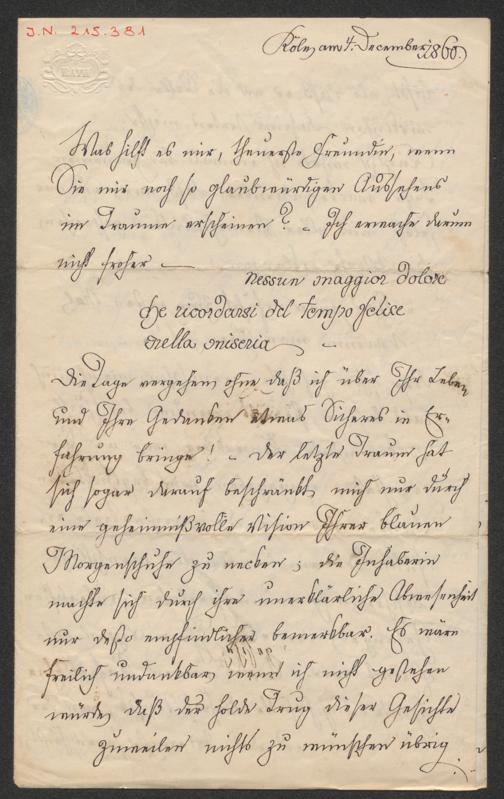 J.N. 215.381
BATH
Köln am 4. December 1860.
Was hilft es mir, theuerste Freundin, wenn
Sie mir noch so glaubwürdigen Aussehens
im Traume erscheinen? – Ich erwache darum
nicht froher —
Nessun maggior dolore
che ricordarsi del tempo felice
nella miseria —
Die Tage vergehen, ohne daß ich über Ihr Leben
und Ihre Gedanken etwas Sicheres in Er-
fahrung bringe! – Der letzte Traum hat
sich sogar darauf beschränkt, mich nur durch
eine geheimnißvolle Vision Ihrer blauen
Morgenschuhe zu necken; die Inhaberin
machte sich durch ihre unerklärliche Abwesenheit
nur desto empfindlicher bemerkbar. Es wäre
freilich undankbar, wenn ich nicht gestehen
würde, daß der holde Trug dieser Gesichte
zuweilen nichts zu wünschen übrig